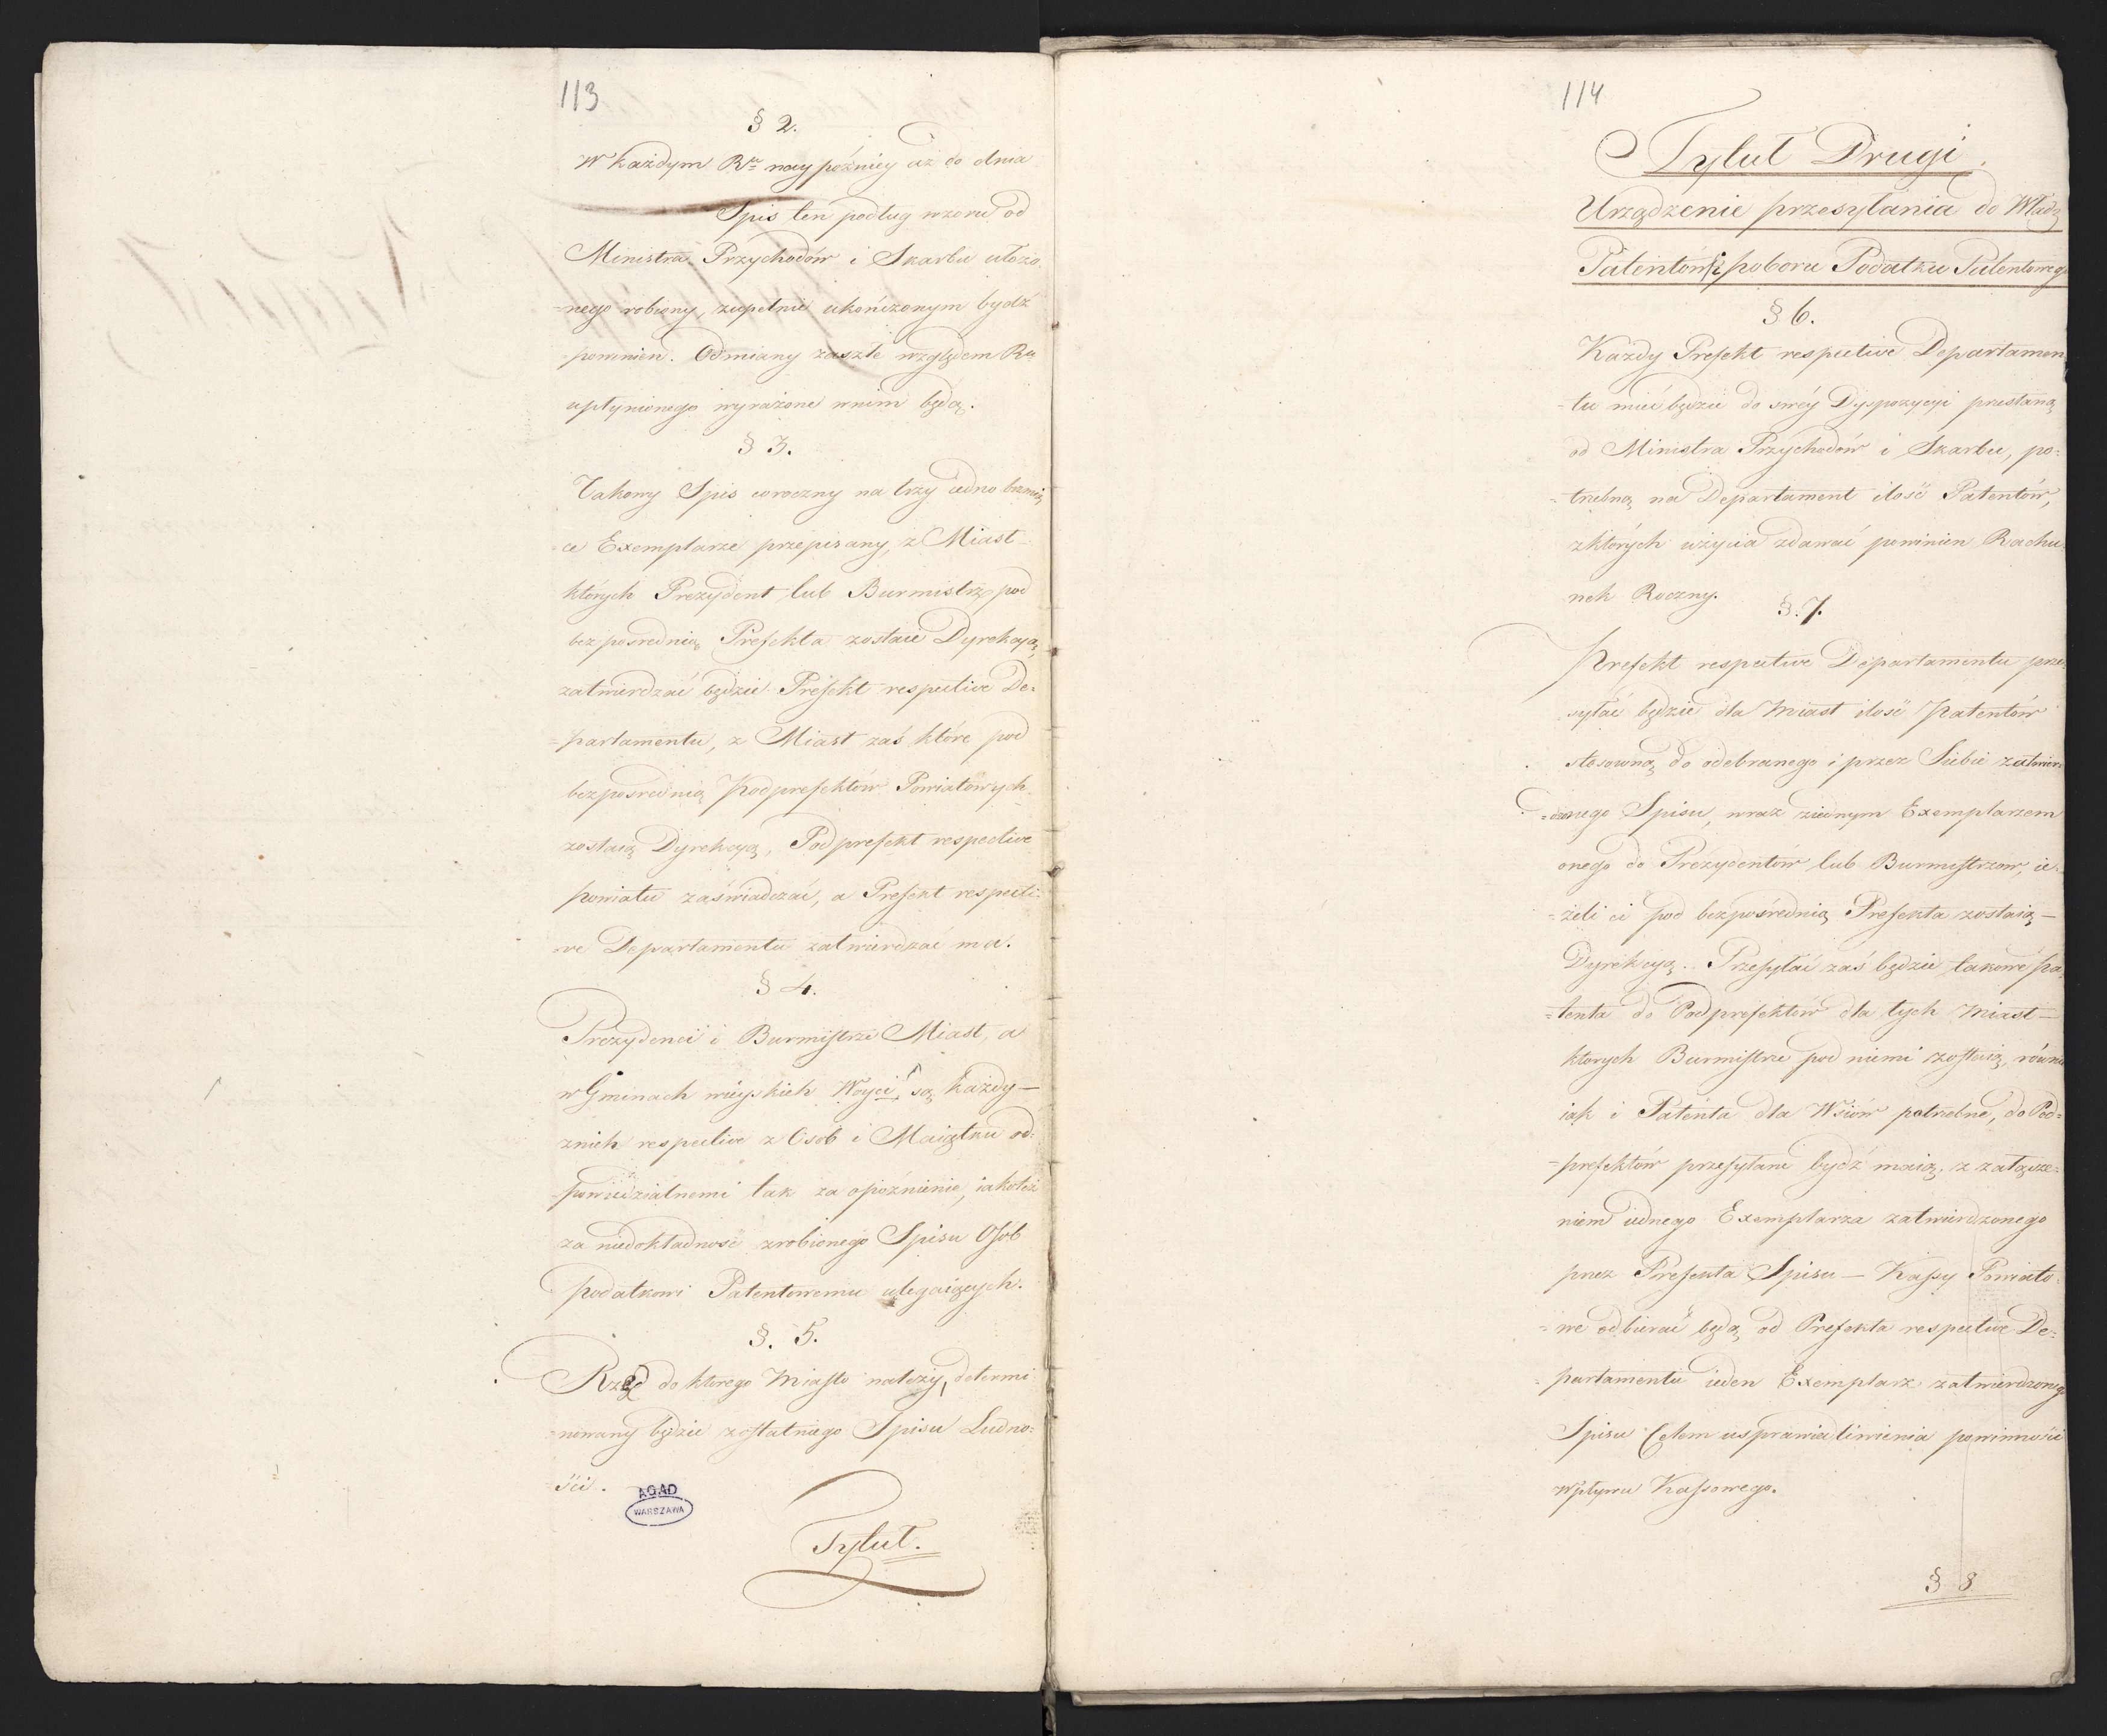 113
§ 2.
W każdym R<sup>ku</sup> nay późniey aż do dnia
Spis ten podług wzoru od
Ministra Przychodów i Skarbu ułożo
=nego robiony, zupełnie ukończonym bydź
powinien. Odmiany zaszłe względem Ru
upłynionego wyrażone wnim będą.
§ 3.
Takowy Spis coroczny na trzy iedno brzmią
=ce Exemplarze przepisany, z Miast
których Prezydent lub Burmistrz pod
bezpośrednią Prefekta zostaie Dyrekcyą,
zatwierdzać będzie Prefekt respective De=
=partamentu, z Miast zaś które pod
bezpośrednią Podprefektów Powiatowych
zostaią Dyrekcyą, Podprefekt respective
powiatu zaświadczać, a Prefekt respecti=
ve Departamentu zatwierdzać ma.
§ 4.
Prezydenci i Burmistrze Miast, a
w Gminach wieyskich Woyci są każdy—
znich respective z Osób i Maiątku od=
powiedzialnemi tak za opoznienie, iakoteż
za niedokładność zrobionego Spisu Osób
podatkowi Patentowemu ulegaiących.
§. 5.
Rząd do ktorego Miasto należy, determi
=nowany będzie zostatniego Spisu Ludno=
=ści.
AGAD
WARSZAWA
Tytuł.
114
Tytuł Drugi.
Urządzenie przesyłania do Władz
Patentów i poboru Podatku Patentowego
§ 6.
Każdy Prefekt respective Departamen
=tu mieć będzie do swéy Dyspozycyi przesłaną
od Ministra Przychodów i Skarbu, po=
=trzebną na Departament ilość Patentów,
zktórych użycia zdawać powinien Rachu=
nek Roczny.
§. 7.
Prefekt respective Departamentu prze
syłać będzie dla Miast ilość Patentów
stosowną do odebranego i przez Siebie zatwier
=dzonego Spisu, wraz ziednym Exemplarzem
onego do Prezydentów lub Burmistrzow, ie
=żeli ci pod bezpośrednią Prefekta zostaią—
Dyrekcyą. Przesyłać zaś będzie takowe Pa
=tenta do Podprefektów dla tych Miast—
ktorych Burmistrze pod niemi zostaią, równie
iak i Patenta dla Wsiów potrzebne, do Pod=
=prefektów przesyłane bydź maią, z załącze=
niem iednego Exemplarza zatwierdzonego
przez Prefekta Spisu— Kassy Powiato
=we odbierać będą od Prefekta respective De=
partamentu ieden Exemplarz zatwierdzonego
Spisu Celem usprawiedliwienia powinności
wpływu Kassowego.
§ 8